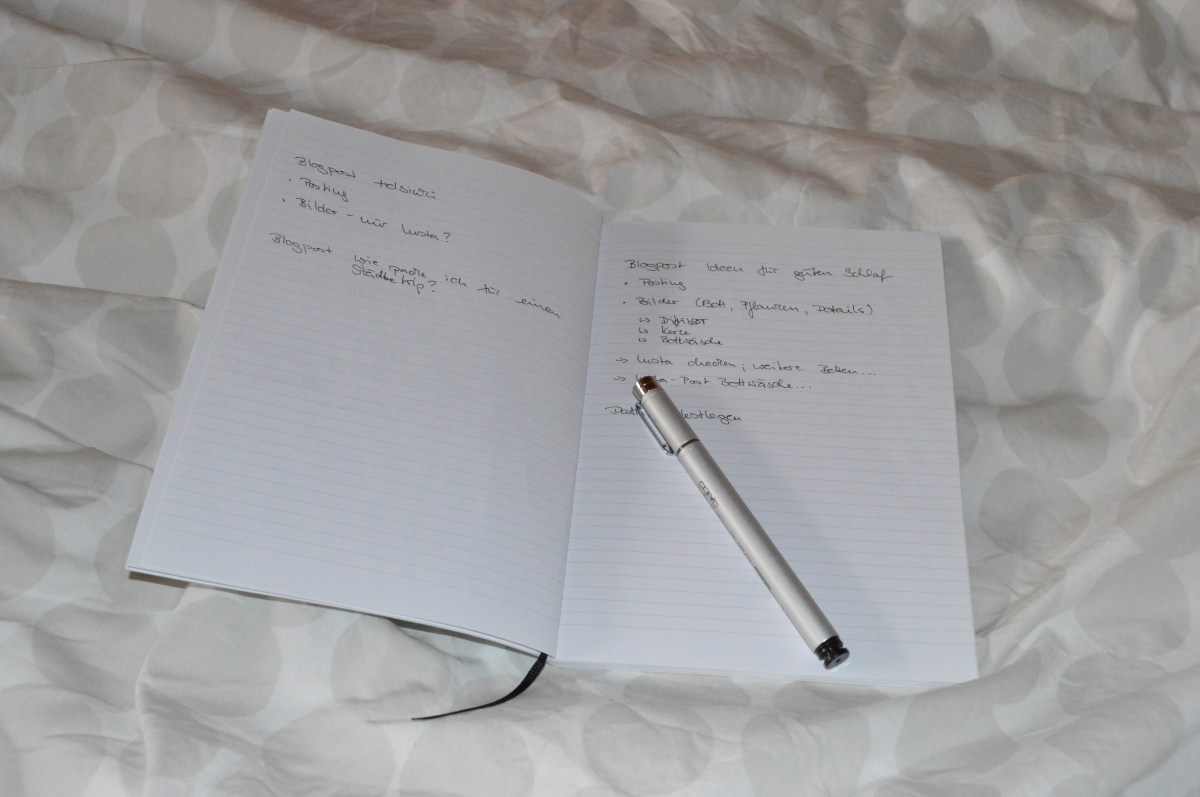 Blogpost Helsinki
• Posting
• Bilder - nur Insta?
Blogpost wie packe ich für einen
Städtetrip?
Blogpost Ideen für guten Schlaf
• Posting
• Bilder (Bett, Pflanzen, Details)
↳ Diffusor
↳ Kerze
↳ Bettwäsche
→ Insta checken; weitere Zeiten...
→ -Post Bettwäsche...
festlegen